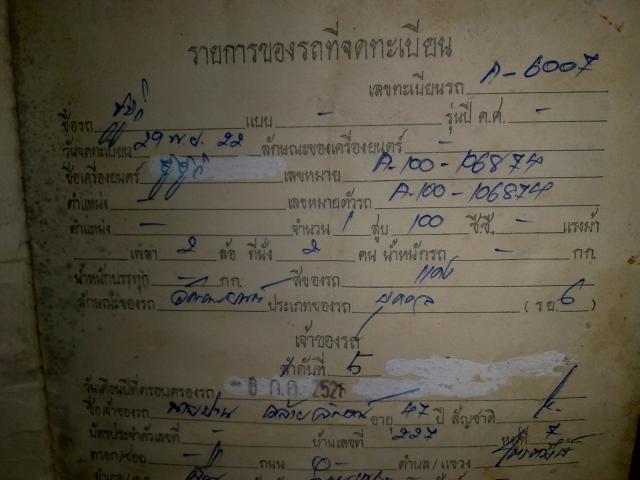 รายการของรถที่จดทะเบียน
เลขทะเบียนรถ A-6007
ชื่อรถ แบบ - รุ่นปี ค.ศ. -
วันจดทะเบียน 29 พ.ย. 22 ลักษณะของเครื่องยนต์ -
ชื่อเครื่องยนต์ เลขหมาย A-100-106874
ตำแหน่ง - เลขหมายตัวรถ A-100-106874
ตำแหน่ง - จำนวน 1 สูบ 100 ซี.ซี. - แรงม้า
เพลา 2 ล้อ ที่นั่ง 2 คน น้ำหนักรถ - กก.
น้ำหนักบรรทุก - กก. สีของรถ แดง
ลักษณะของรถ ประเภทของรถ (รย. 6)
เจ้าของรถ
ลำดับที่ 5
วันเดือนปีที่ครอบครองรถ - 8 ก.ค. 2526
ชื่อเจ้าของรถ อายุ 47 ปี สัญชาติ
บัตรประจำตัวเลขที่ - บ้านเลขที่ 227 หมู่ที่ 7
ตรอก/ซอย - ถนน - ตำบล/แขวง